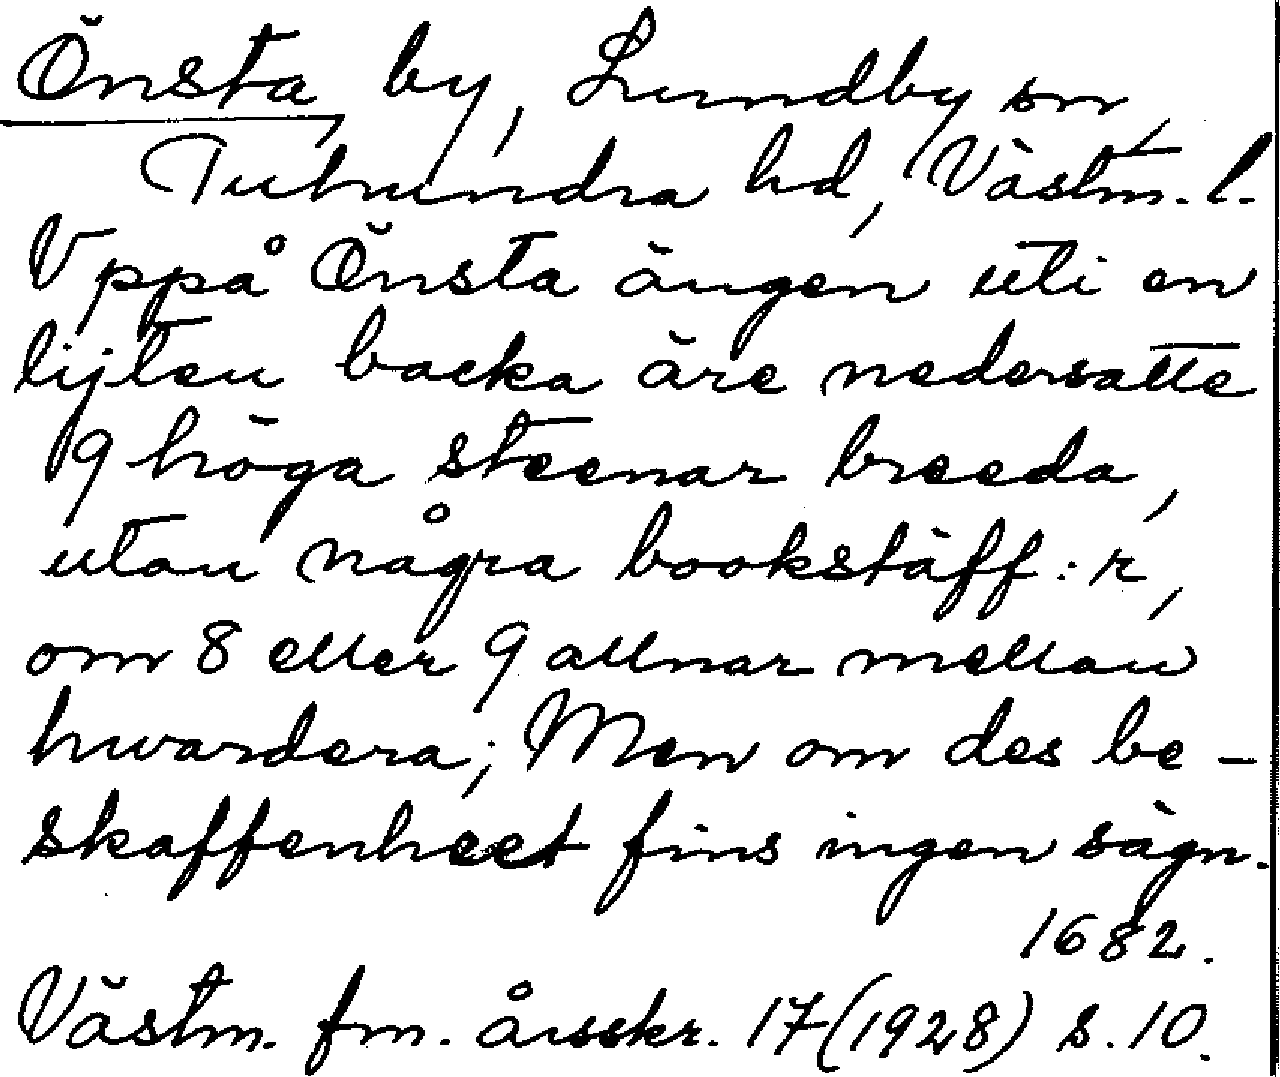 Önsta, by, Lundby sn,
Tuhundra hd, Västm. l.
Vppå Önsta ängen uti en
lijten backa äre nedersatte
9 höga steenar breeda,
utan några bookstäff:r,
om 8 eller 9 allnar mellan
hwardera; Men om des be-
skaffenheet fins ingen sägn.
1682.
Västm. fm. årsskr. 17 (1928) s. 10.